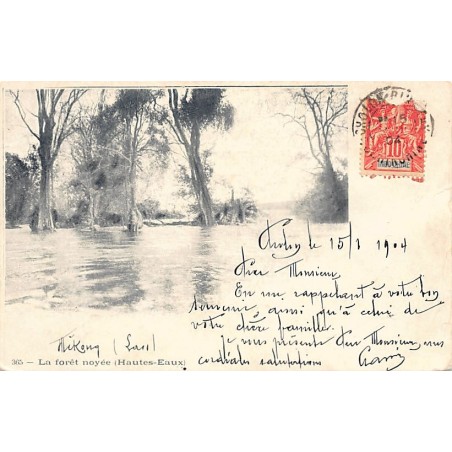 10
INDO-CHINE
le 15/1 1904
Cher Monsieur,
En me rappelant à votre bon
souvenir, ainsi qu'à celui de
votre chère famille.
je vous présente, cher Monsieur, mes
cordiales salutations
Mékong (Laos)
365 — La forêt noyée (Hautes-Eaux)